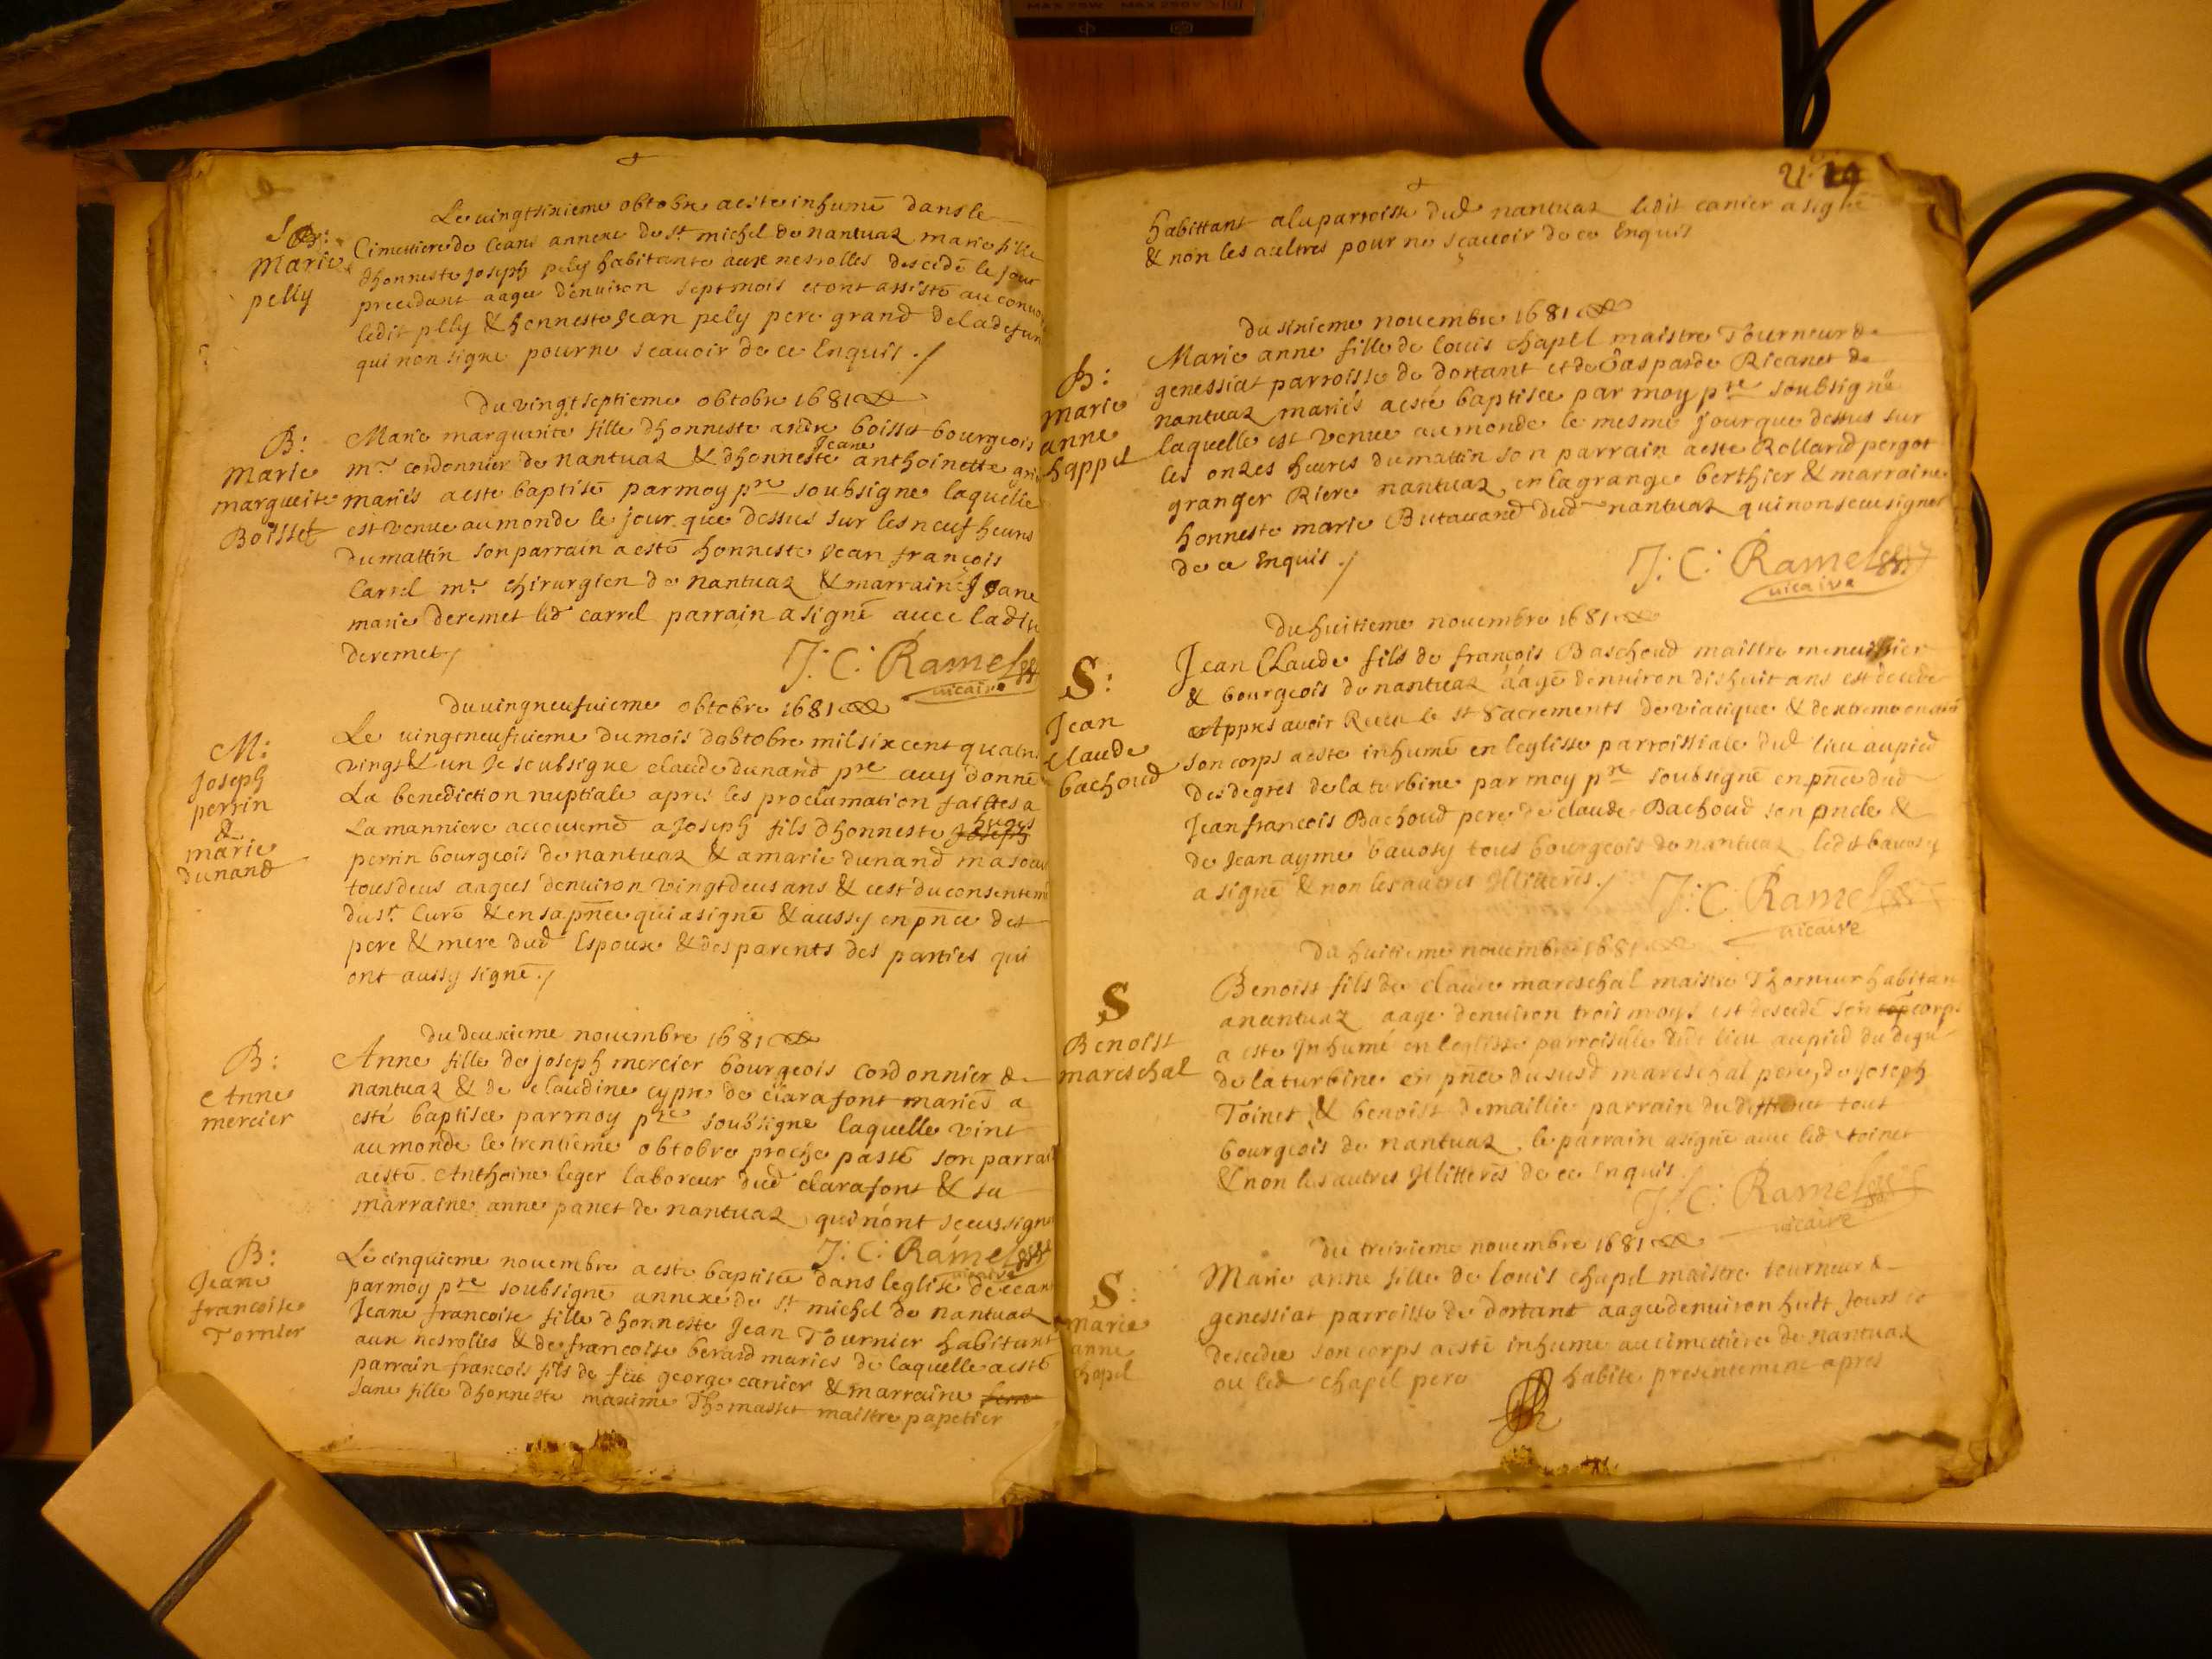 Le vingtsixieme obtobre aeste inhumé dans le
S B:
Marie
pelly
Cimettiere de Ceans annexe de st michel de nantuaz marie fille
dhonneste Joseph pely habitante aux nesrolles descedé le jour
precedant aagee denuiron sept mois et ont assisté au
ledit plly & honneste Jean pely pere grand de la
qui non signe pour ne scauoir de ce Enquis ./
Du vingt septieme obtobre 1681
B:
Marie
marguerite
Boisset
Marie marguerite fille dhonneste andre boisset bourgeois
mre cordonnier de nantuaz & dhonneste Jeane anthoinette
mariés aeste baptisé par moy pre soubsigne laquelle
est venue au monde le jour que dessus sur les neuf heures
du mattin son parrain a esté honneste Jean françois
Carrel mre chirurgien de nantuaz & marraine Jeane
marie deremet led carrel parrain a signé avec ladite
deremet /
J: C: Ramel
vicaire
du vingneufuieme obtobre 1681
M:
Joseph
perrin
&
marie
dunand
Le vingtneufuieme du mois dobtobre mil six cent quatre
vingt & un Je soubsigne claude dunand pre auy donné
La benediction nuptiale apres les proclamation faittes a
La manniere accoutumé a Joseph fils dhonneste hugues Joseph
perrin bourgeois de nantuaz & a marie dunand ma soeur
tous deus aagees denuiron vingt deus ans & cest du consentem
du sr. Curé & en sa pnce qui a signé & aussy en pnce des
pere & mere dud Espoux & des parents des parties qui
ont aussy signé ./
du deuxieme novembre 1681
B:
Anne
mercier
Anne fille de joseph mercier bourgeois cordonnier de
nantuaz & de claudine cypre de clarafont mariés a
esté baptisee par moy pre soubsigne laquelle vint
au monde le trentieme obtobre proche passé son parrain
aesté Anthoine leger laboreur dud clarafont & sa
marraine anne panet de nantuaz qui n'ont sceu signer
J: C: Ramel
vicaire
B:
Jeane
francoise
Tornier
Le cinquieme novembre aeste baptisée dans leglise de ceans
par moy pre soubsigné annexe de st michel de nantuaz
Jeane francoise fille dhonneste Jean Tournier habitant
aux nesrolles & de francoise berard mariés de laquelle aesté
parrain francois fils de feu george canier & marraine
Jane fille dhonneste maxime Thomasset maistre papetier
habittant a la parroisse dud nantuaz ledit canier a signé
& non les aultres pour ne sçauoir de ce Enquis
du sixieme novembre 1681
B:
marie
anne
happel
Marie anne fille de louis chapel maistre Tourneur de
genessiat parroisse de dortant et de Gasparde Ricanet de
nantuaz mariés aesté baptisee par moy pre soubsigné
laquelle est venue au monde le mesme jour que dessus sur
les onzes heures du mattin son parrain aeste Rolland pergot
granger Riere nantuaz en la grange berthier & marraine
honneste marie Butauand dud nantuaz qui non sceu signer
de ce Enquis ./
J: C: Ramel
vicaire
du huitieme novembre 1681
S:
Jean
Claude
bachoud
Jean Claude fils de françois Baschoud maistre menuisier
& bourgeois de nantuaz aagé denuiron dishuit ans est decede
Appres avoir Receu le st Sacrements de viatique & dextreme onction
son corps aeste inhumé en leglisse parroissiale dud lieu au pied
des degres de la turbine par moy pre soubsigné en pnce dud
Jean francois Bachoud pere de claude Bachoud son oncle &
de Jean ayme bauosy tous bourgeois de nantuaz ledit bauosy
a signé & non les autres Illitterés ./
J: C: Ramel
vicaire
du huitieme novembre 1681
S
Benoist
mareschal
Benoist fils de claude mareschal maistre Thorneur habitan
a nantuaz aage denuiron trois moys est descedé son corps
a este Inhumé en leglisse parroisiale dud lieu au pied du degré
de la turbine en pnce du susd mareschal pere, de joseph
Toinet & benoist demaillie parrain du deffunct tout
bourgeois de nantuaz le parrain a signé avec led toinet
& non les autres Illitterés de ce Enquis ./
J: C: Ramel
vicaire
du treizieme novembre 1681
S:
marie
anne
chapel
Marie anne fille de louis chapel maistre tourneur de
genessiat parroisse de dortant aagee denuiron huit jours
descedee son corps aesté inhumé au cimettiere de nantuaz
ou led chapel pere habite presentement apres